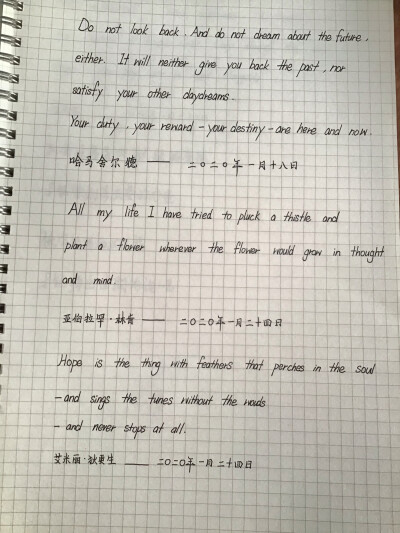 Do not look back. And do not dream about the future,
either. It will neither give you back the past, nor
satisfy your other daydreams.
Your duty, your reward - your destiny - are here and now.
哈马舍尔德 —— 二〇二〇年一月十八日
All my life I have tried to pluck a thistle and
plant a flower wherever the flower would grow in thought
and mind.
亚伯拉罕·林肯 —— 二〇二〇年一月二十四日
Hope is the thing with feathers that perches in the soul
- and sings the tunes without the words
- and never stops at all.
艾米丽·狄更生 —— 二〇二〇年一月二十四日